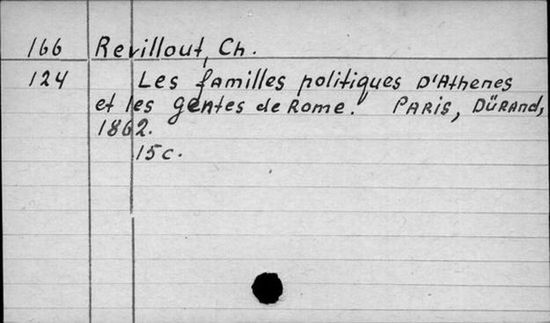 166 Revillout, Ch.
124 Les familles politiques D'Athenes
et les gentes de Rome. PARIS, DÜRAND,
1862.
15c.